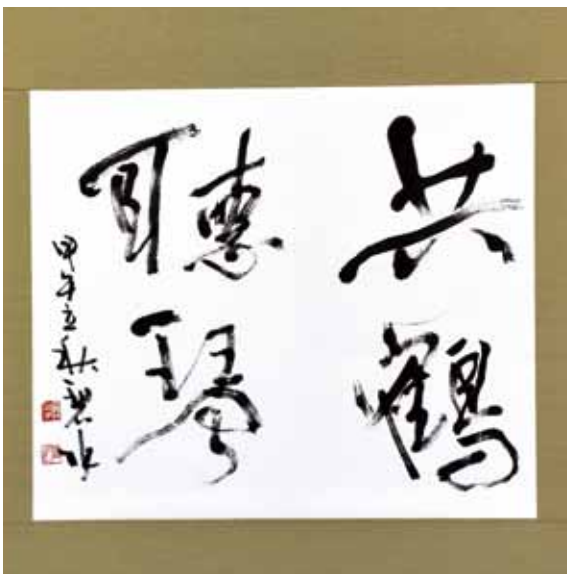 共鶴
聽琴
甲午立秋碧水